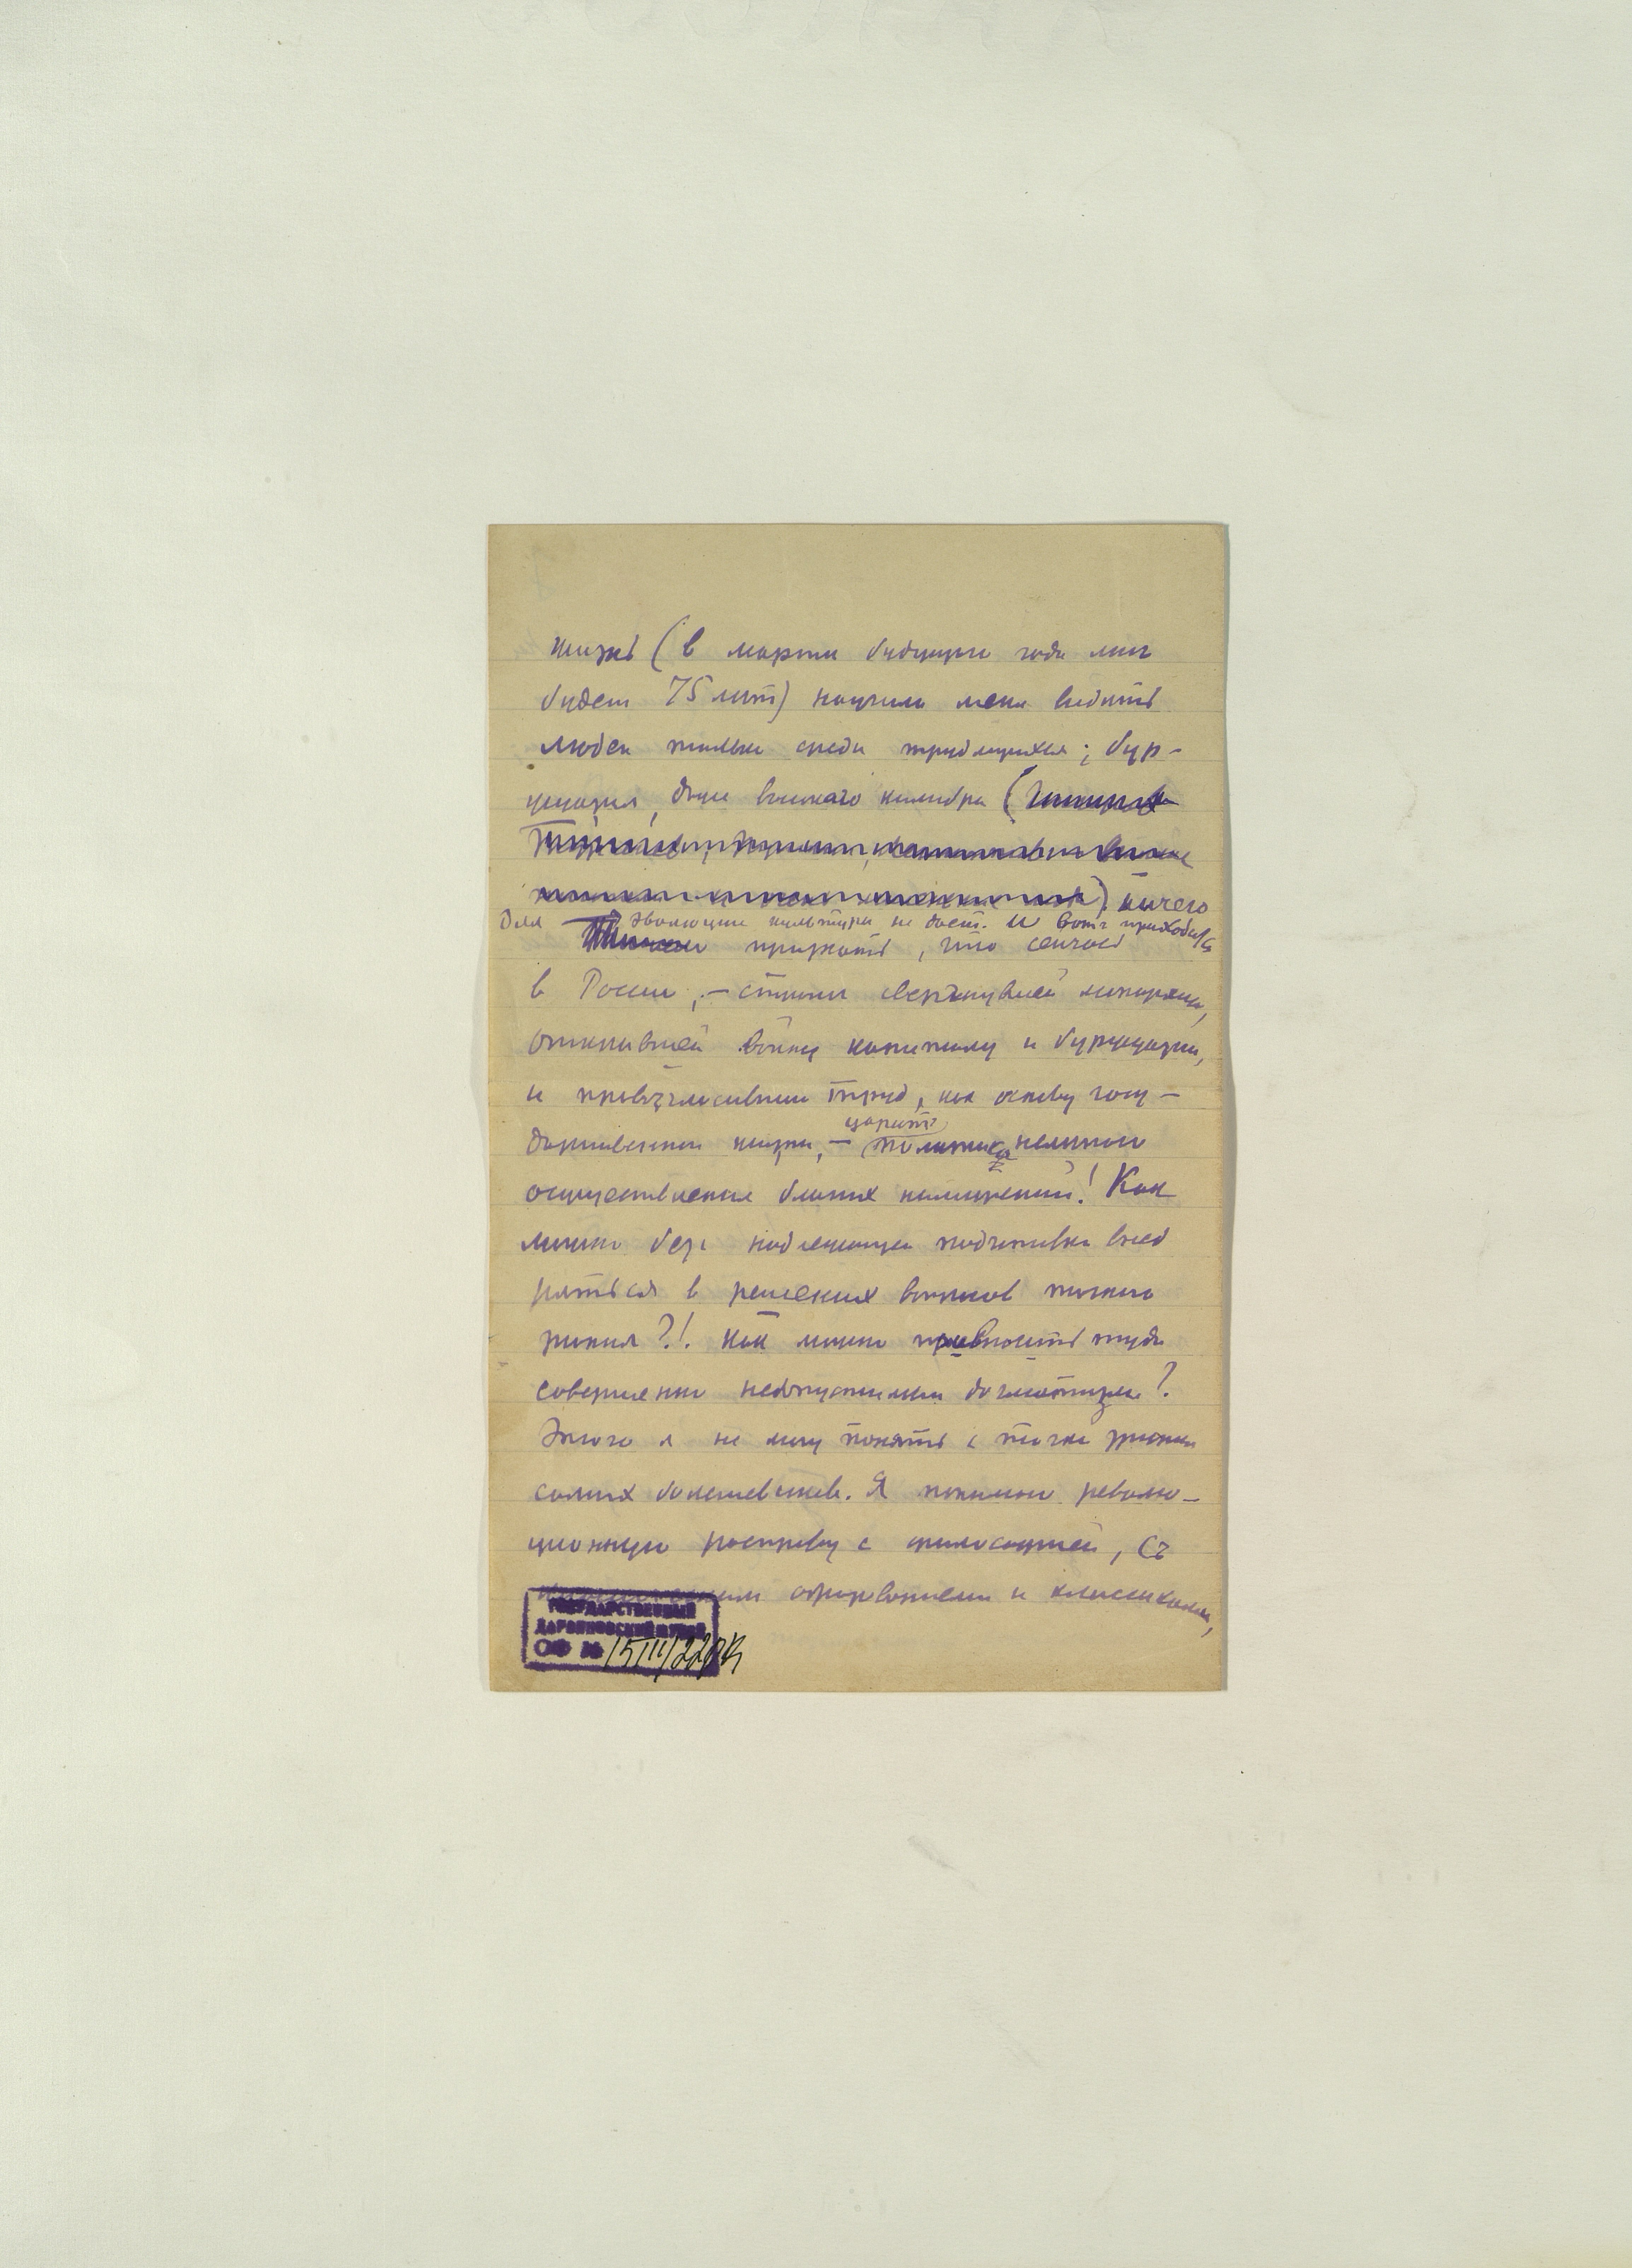 жизнь (в марте будущего года мне
будет 75 лет) научила меня видеть
людей только среди трудящихся; бур-
жуазия, даже высшего калибра (
) ничего
для эволюции культуры не дает. И вот приходится
признать, что сейчас
в России, – стране свергнувшей монархию,
объявившей войну капиталу и буржуазии,
и провозгласившей труд, как основу госу-
дарственной жизни, – царит политика нелепого
осуществления благих пожеланий! Как
можно без надлежащей подготовки внед
ряться в решения вопросов такого
рода?!. Как можно привносить туда
совершенно недопустимый догматизм?
Этого я не могу понять с точки зрения
самих большевиков. Я понимаю револю-
ционную расправу с философией, съ
образованием и классиками,
ГОСУДАРСТВЕННЫЙ
ДАРВИНОВСКИЙ МУЗЕЙ
ОФ № 15111/220